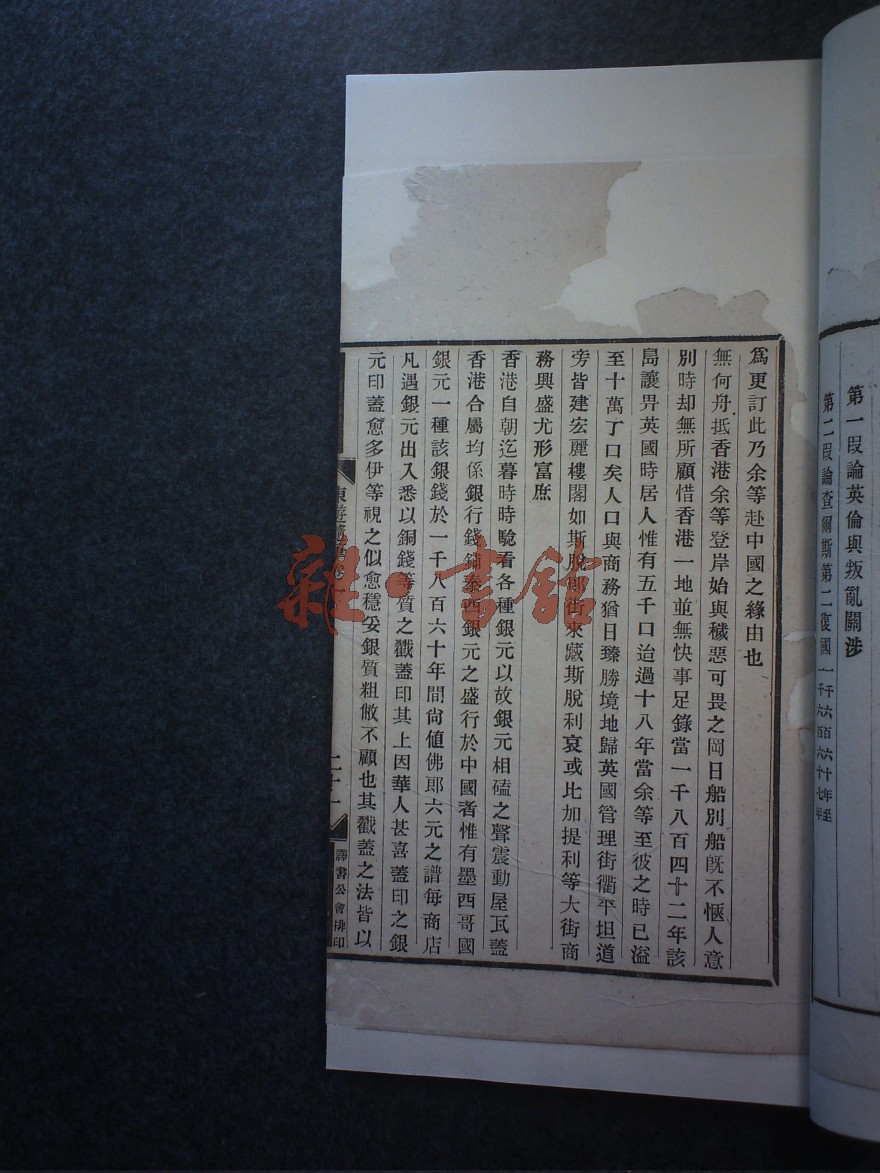 第一段論英倫與叛亂關涉
第二段論查爾斯第二復國一千六百六十年至一千六百六十七年
爲更訂此乃余等赴中國之緣由也
無何舟抵香港余等登岸始與穢惡可畏之岡日船別船旣不愜人意
別時却無所顧惜香港一地並無快事足錄當一千八百四十二年該
島讓畀英國時居人惟有五千口迨過十八年當余等至彼之時已溢
至十萬了口矣人口與商務猶日臻勝境地歸英國管理街衢平坦道
旁皆建宏麗樓閣如斯脫郎街來蒇斯脫利哀或比加提利等大街商
務興盛尤形富庶
香港自朝迄暮時時驗看各種銀元以故銀元相磕之聲震動屋瓦蓋
香港合屬均係銀行錢鋪泰西銀元之盛行於中國者惟有墨西哥國
銀元一種該銀錢於一千八百六十年間尙値佛郎六元之譜每商店
凡遇銀元出入悉以銅錢等質之戳蓋印其上因華人甚喜蓋印之銀
元印蓋愈多伊等視之似愈穩妥銀質粗傲不顧也其戳蓋之法皆以
東遊隨筆卷一
二十一
譯書公會排印
雜·書館